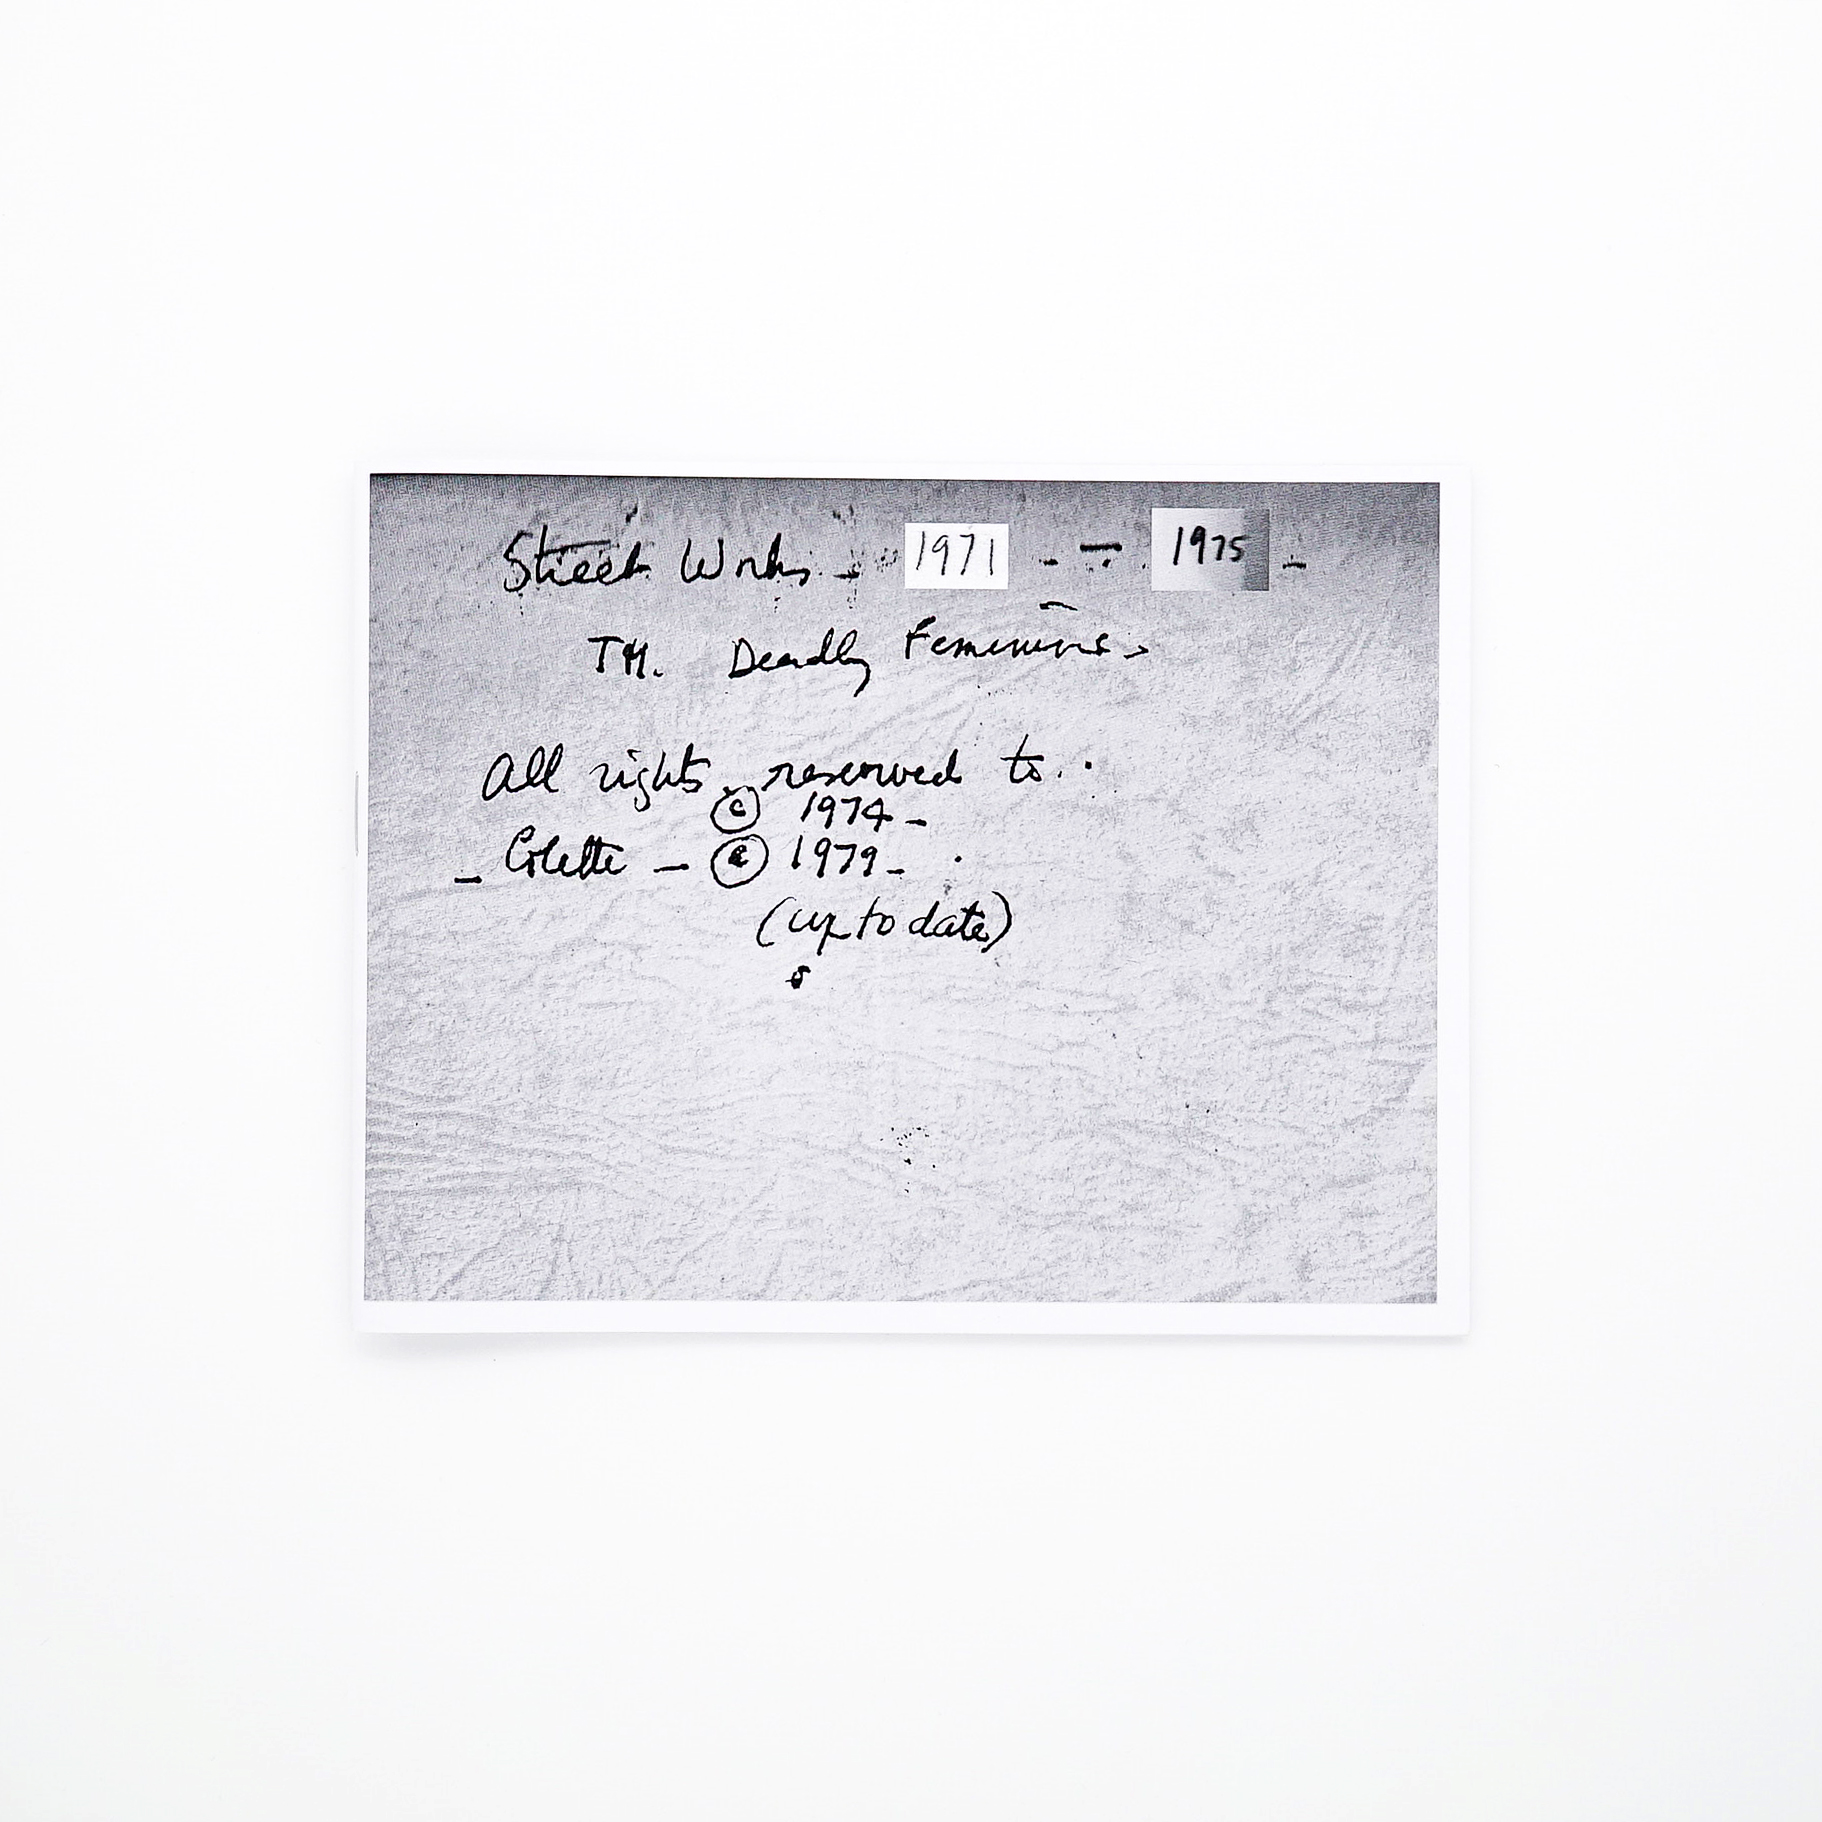 Street Works - 1971 - - 1975 -
TH. Deadly Feminine -
All rights reserved to..
© 1974 -
- Colette - © 1979 -
(up to date)